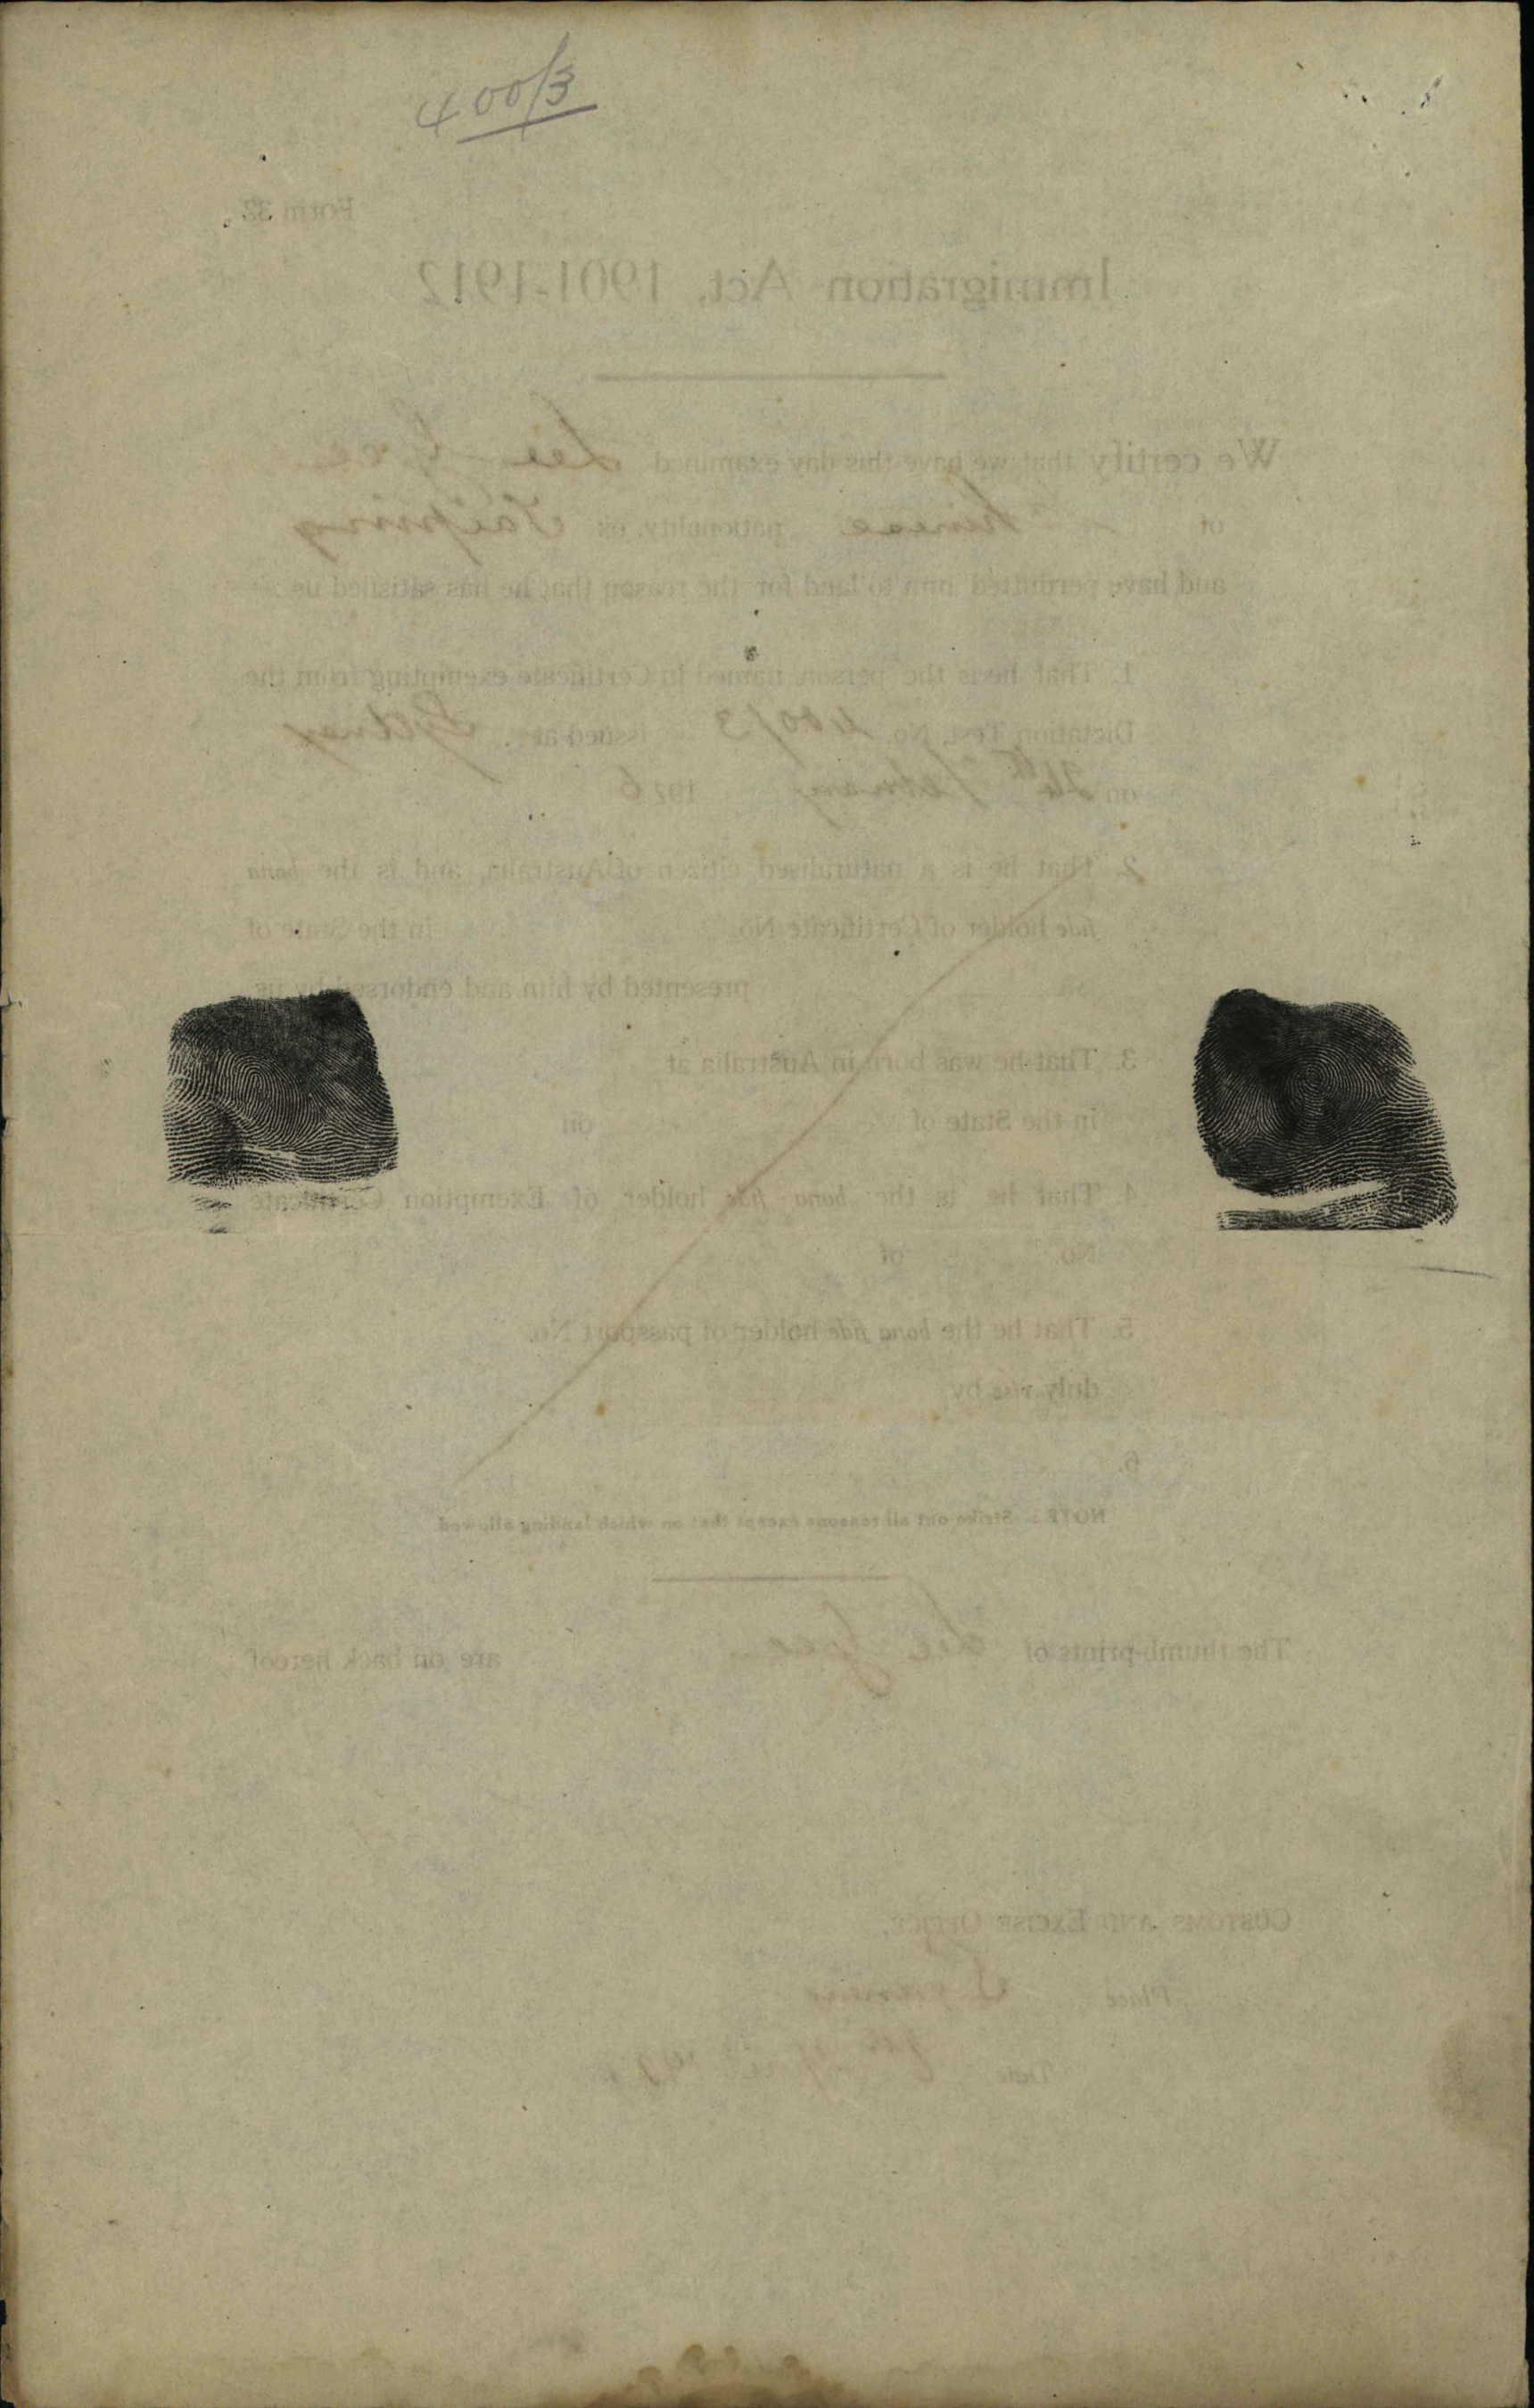 400/3
Form 32.
Immigration Act, 1901-1912
We certify that we have this day examined Lee
of Chinese nationality, ex Taiping
and have permitted him to land for the reason that he has satisfied us:—
1. That he is the person named in Certificate exempting from the
Dictation Test, No. 400/3 issued at Sydney
on 24th February 1926
2. That he is a naturalised citizen of Australia, and is the bona
fide holder of Certificate No. in the State of
as presented by him and endorsed by us
3. That he was born in Australia at
in the State of on
4. That he is the bona fide holder of Exemption Certificate
No. of
5. That he the bona fide holder of passport No.
duly by
6.
NOTE.—Strike out all reasons except that on which landing allowed
The thumb-prints of Lee are on back hereof
CUSTOMS AND EXCISE OFFICE,
Place
Date